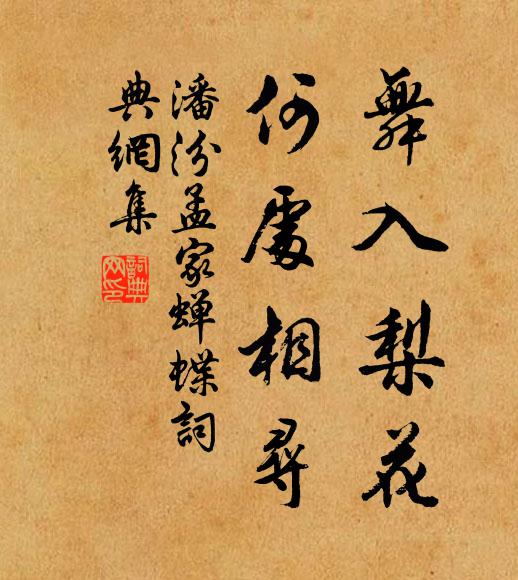 舞入梨花
何處相尋
潘汾孟家蟬蝶詞
典網集
詞典網印